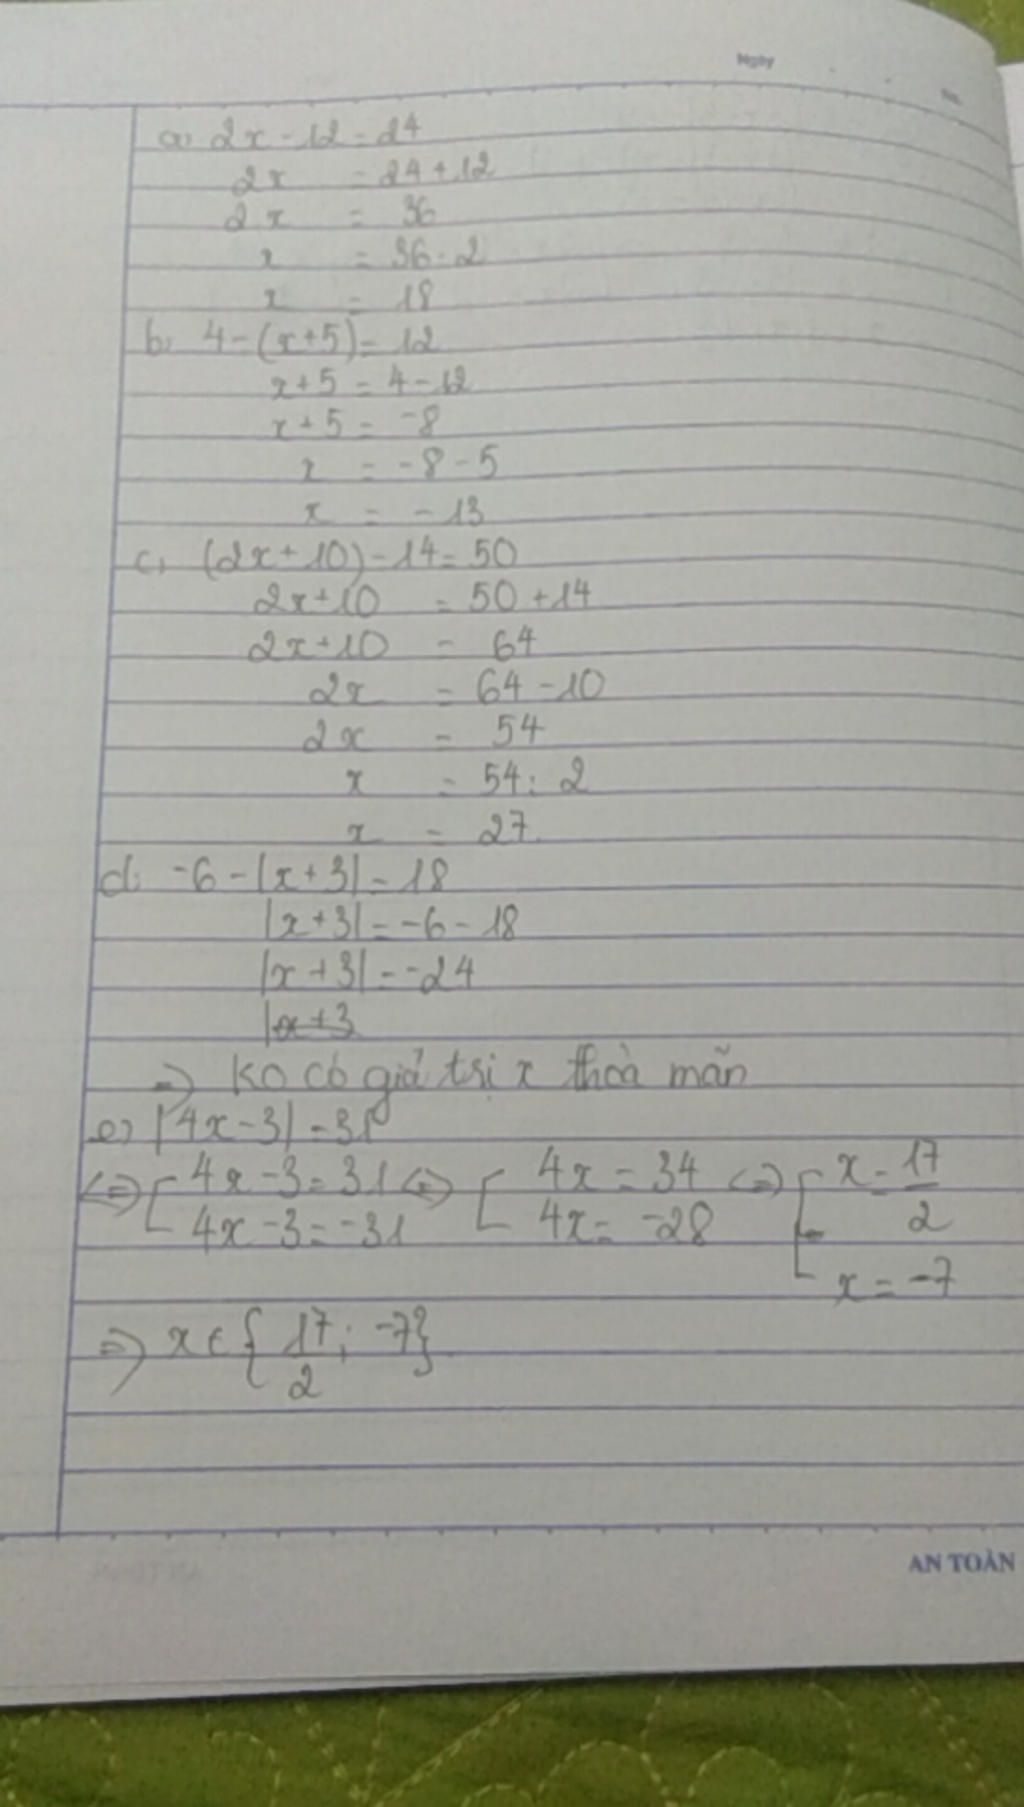 Ngày
a, 2x - 12 = 24
2x = 24 + 12
2x = 36
x = 36 : 2
x = 18
b, 4 - (x + 5) = 12
x + 5 = 4 - 12
x + 5 = -8
x = -8 - 5
x = -13
c, (2x + 10) - 14 = 50
2x + 10 = 50 + 14
2x + 10 = 64
2x = 64 - 10
2x = 54
x = 54 : 2
x = 27
d, -6 - |x + 3| = 18
|x + 3| = -6 - 18
|x + 3| = -24
|x + 3
=> Ko có giá trị x thoả mãn
e, |4x - 3| = 31
<=> [ 4x - 3 = 31 <=> [ 4x = 34 <=> [ x = 17/2
4x - 3 = -31 4x = -28
x = -7
=> x ∈ { 17/2 ; -7 }
AN TOÀN